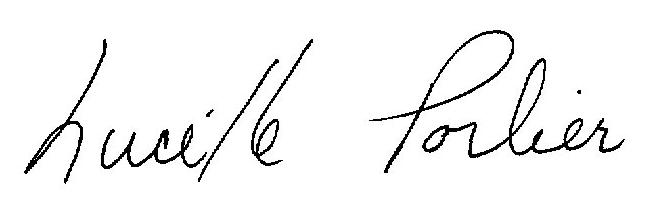 Lucille Porlier